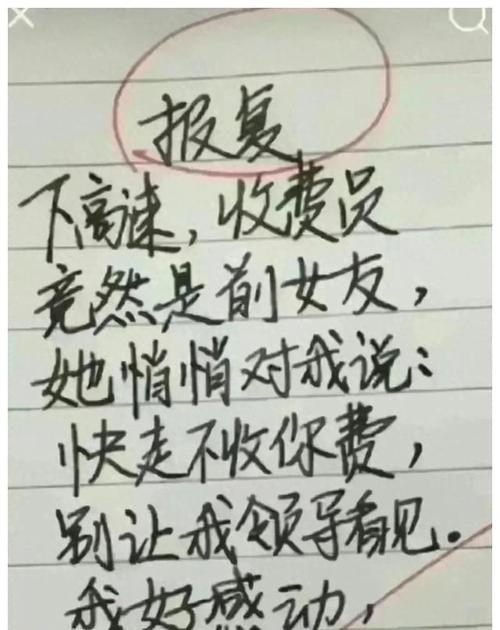 报复
下高速，收费员
竟然是前女友，
她悄悄对我说：
快走不收你费，
别让我领导看见。
我好感动，